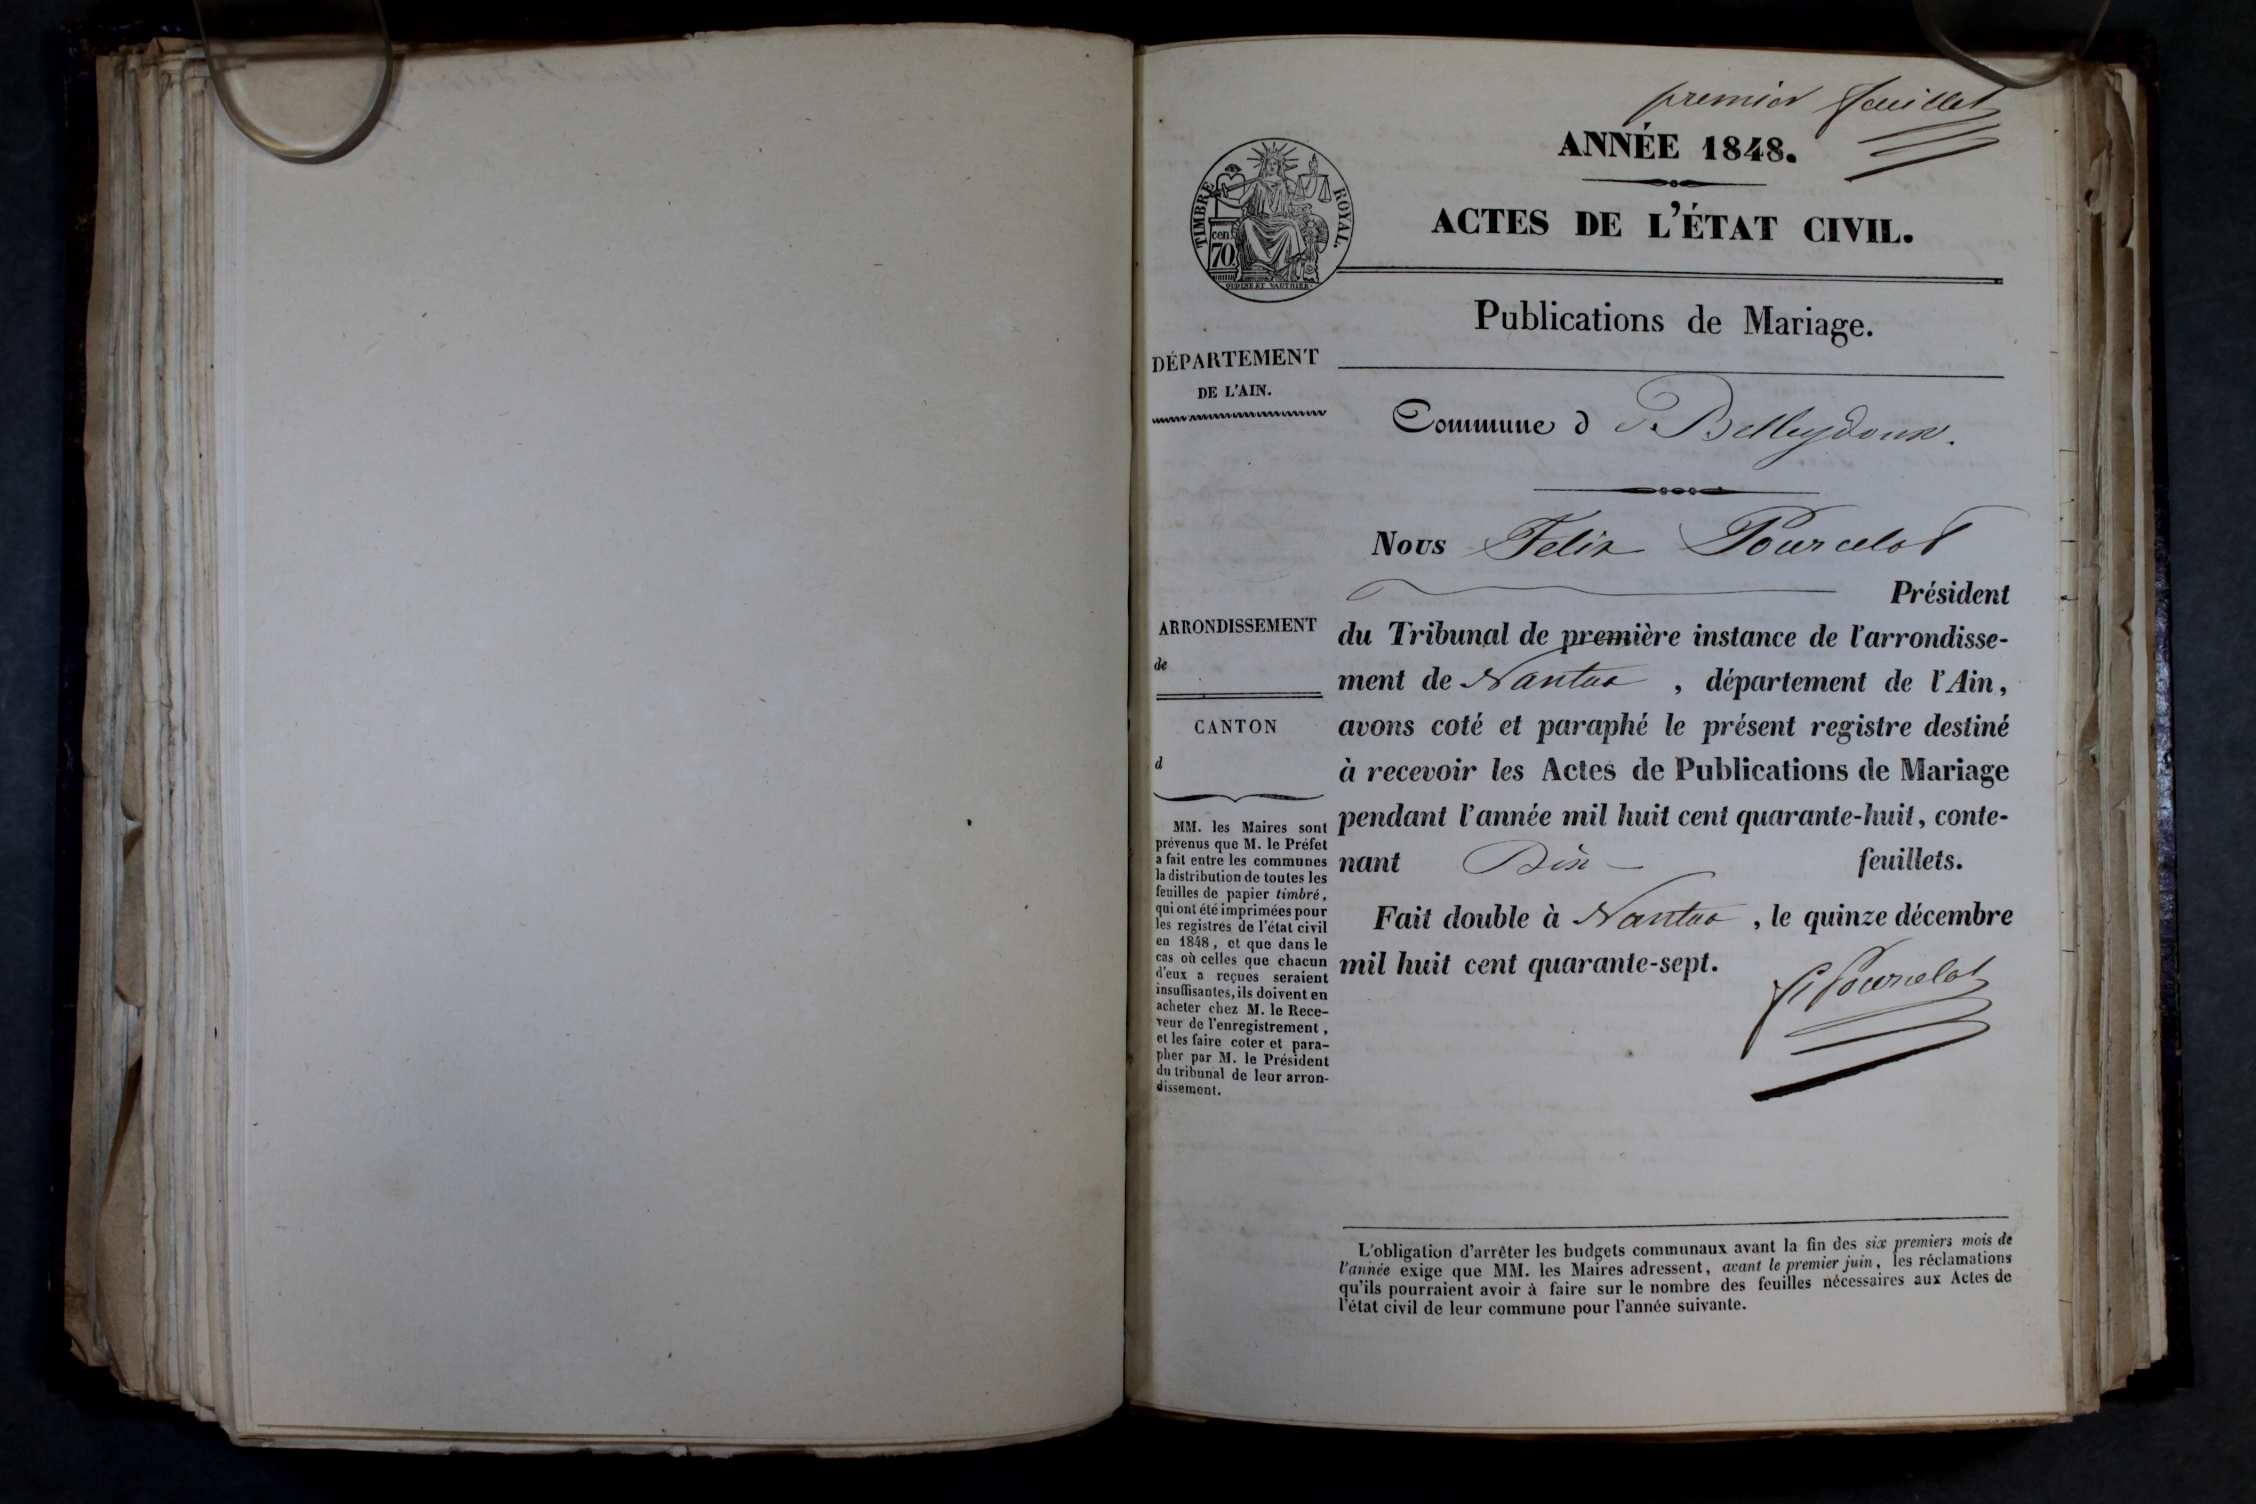 premier feuillet
ANNÉE 1848.
TIMBRE ROYAL.
cen. 70
OUDINÉ ET VAUTHIER.
ACTES DE L'ÉTAT CIVIL.
Publications de Mariage.
DÉPARTEMENT
DE L'AIN.
Commune d Belleydoux.
Nous Felix Pourcelot
Président
du Tribunal de première instance de l'arrondisse-
ment de Nantua , département de l'Ain,
avons coté et paraphé le présent registre destiné
à recevoir les Actes de Publications de Mariage
pendant l'année mil huit cent quarante-huit, conte-
nant Dix feuillets.
Fait double à Nantua , le quinze décembre
mil huit cent quarante-sept.
F. Pourcelot
ARRONDISSEMENT
de
CANTON
d
MM. les Maires sont
prévenus que M. le Préfet
a fait entre les communes
la distribution de toutes les
feuilles de papier timbré,
qui ont été imprimées pour
les registres de l'état civil
en 1848, et que dans le
cas où celles que chacun
d'eux a reçues seraient
insuffisantes, ils doivent en
acheter chez M. le Rece-
veur de l'enregistrement,
et les faire coter et para-
pher par M. le Président
du tribunal de leur arron-
dissement.
L'obligation d'arrêter les budgets communaux avant la fin des six premiers mois de
l'année exige que MM. les Maires adressent, avant le premier juin, les réclamations
qu'ils pourraient avoir à faire sur le nombre des feuilles nécessaires aux Actes de
l'état civil de leur commune pour l'année suivante.